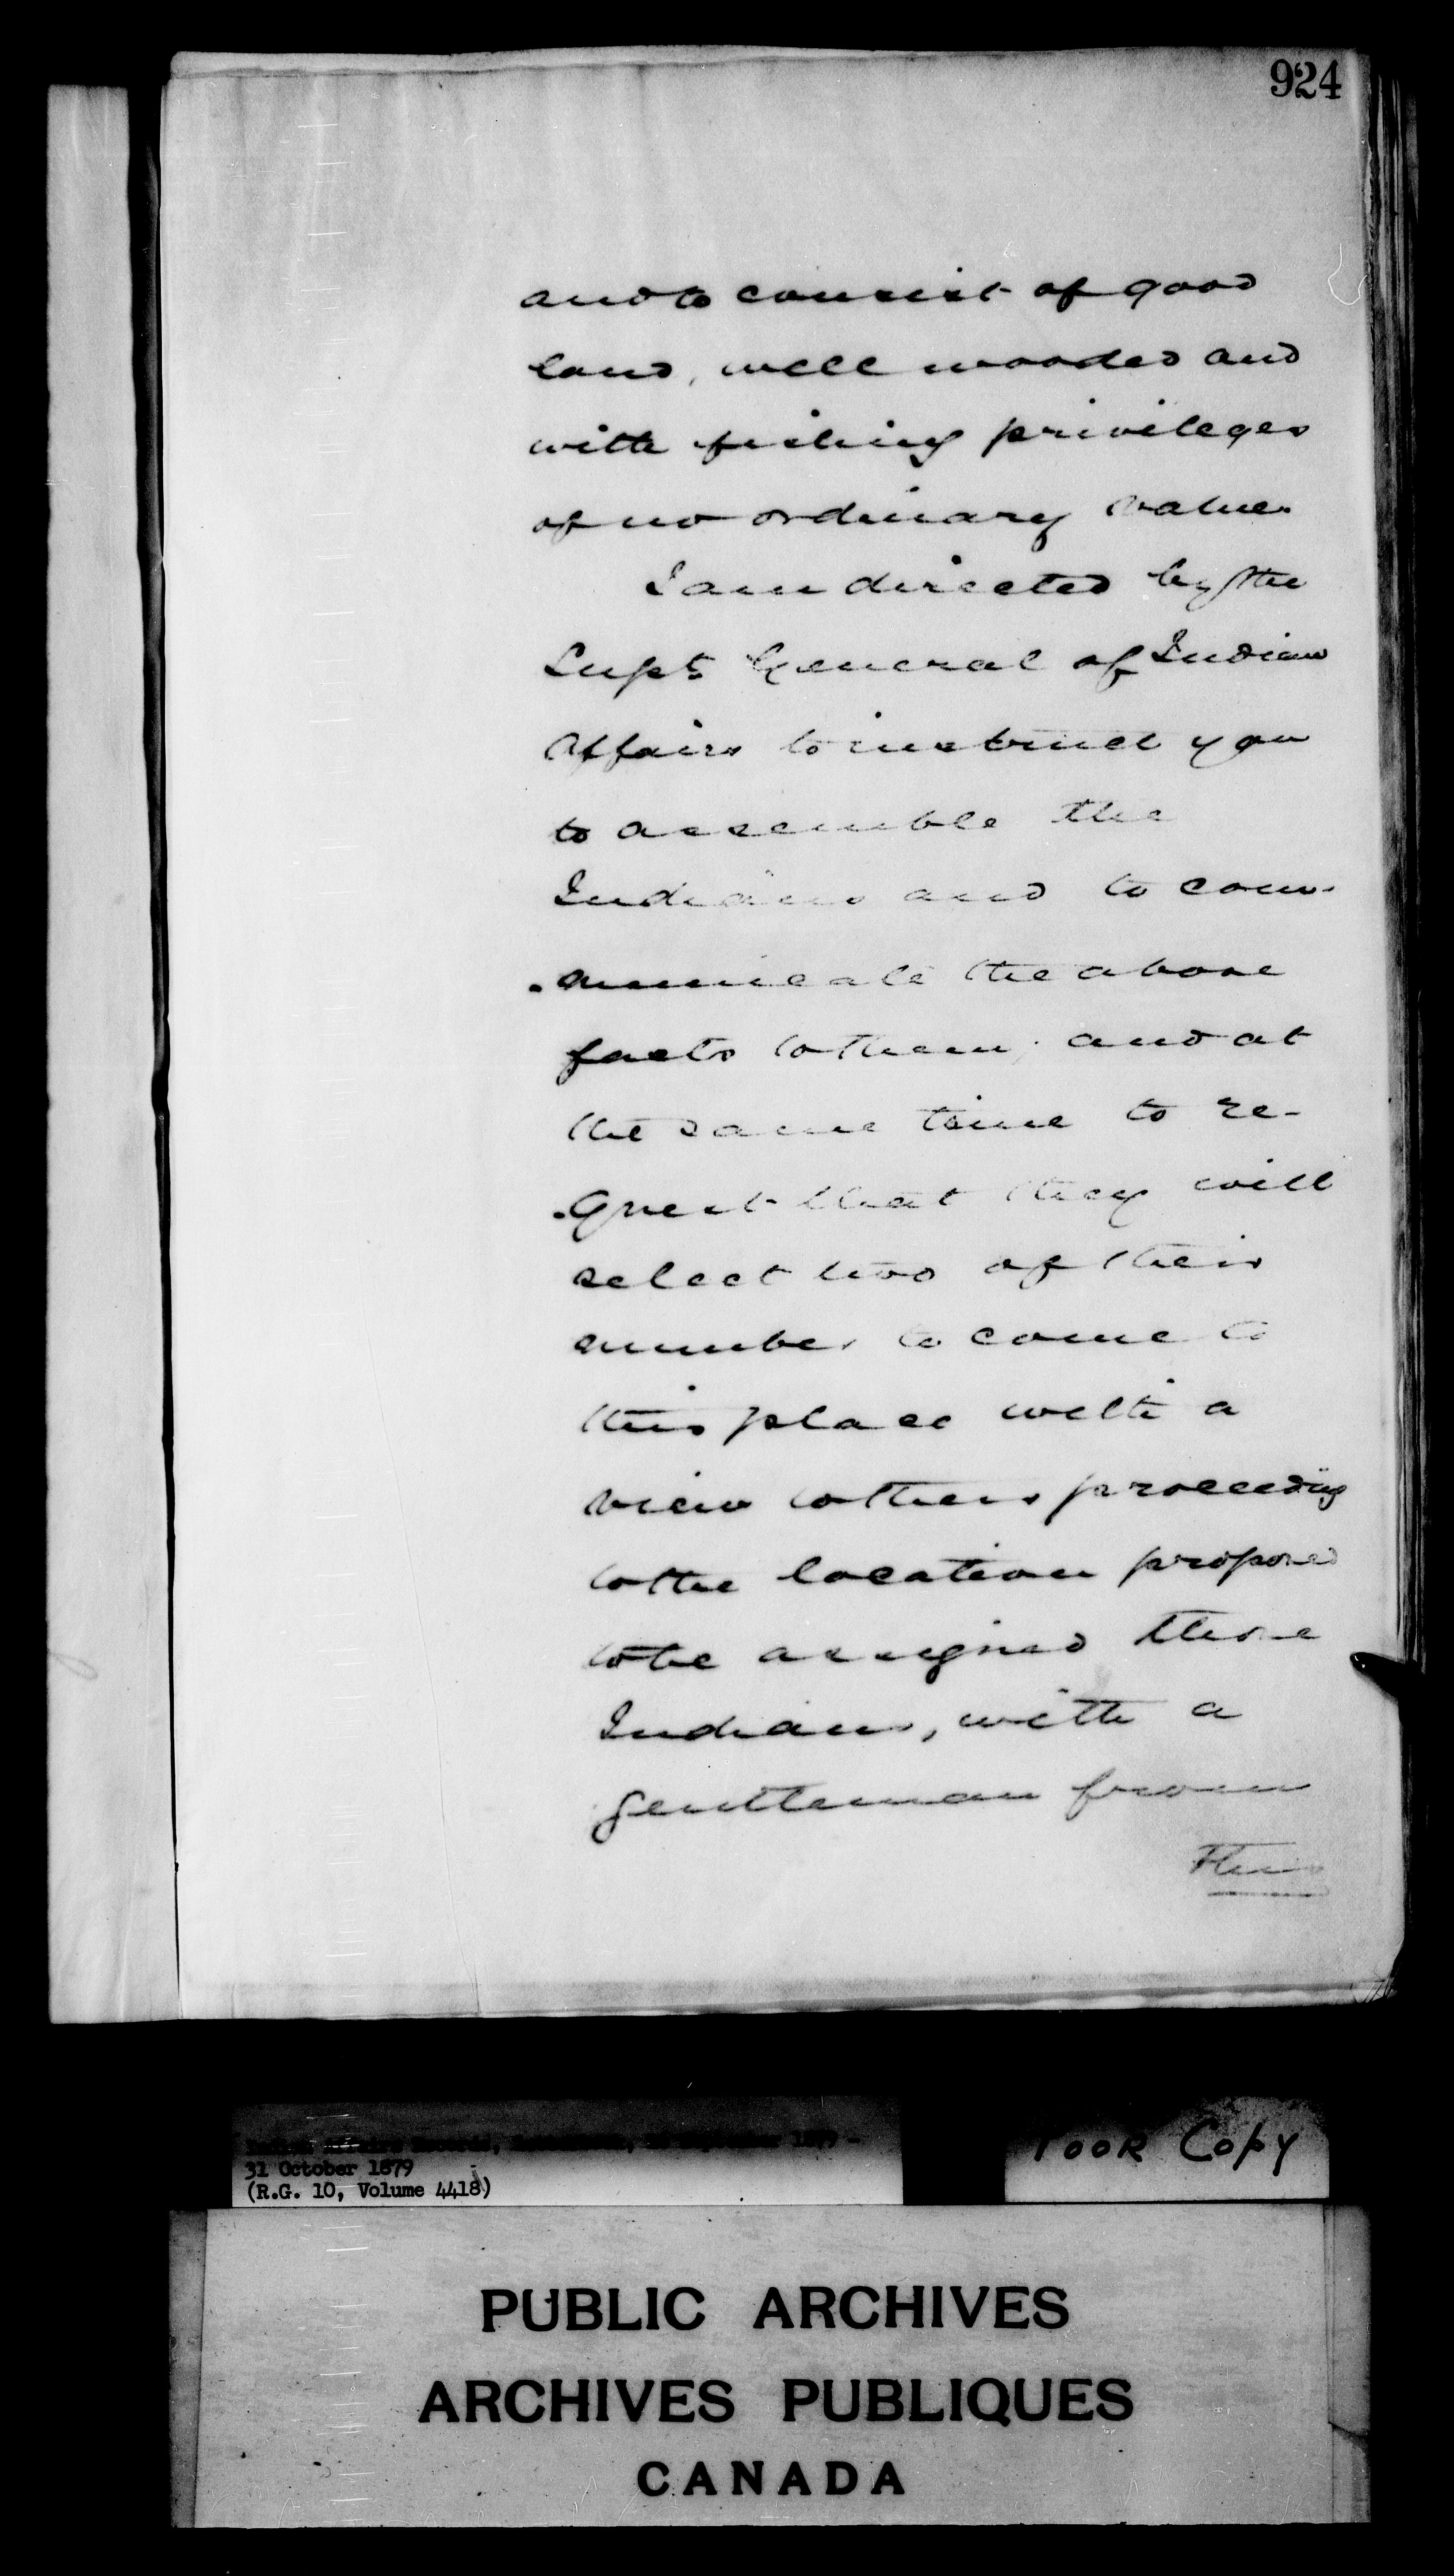 924
and to consist of good
land, well wooded and
with fishing privileges
of no ordinary value.
I am directed by the
Supt. General of Indian
Affairs to instruct you
to assemble the
Indians and to com-
-municate the above
facts to them; and at
the same time to re-
-quest that they will
select two of their
number to come to
this place with a
view to their proceeding
to the location proposed
to be assigned these
Indians, with a
gentleman from
this
Indian Affairs Records, September 1879 -
31 October 1879
(R.G. 10, Volume 4418)
POOR COPY
PUBLIC ARCHIVES
ARCHIVES PUBLIQUES
CANADA